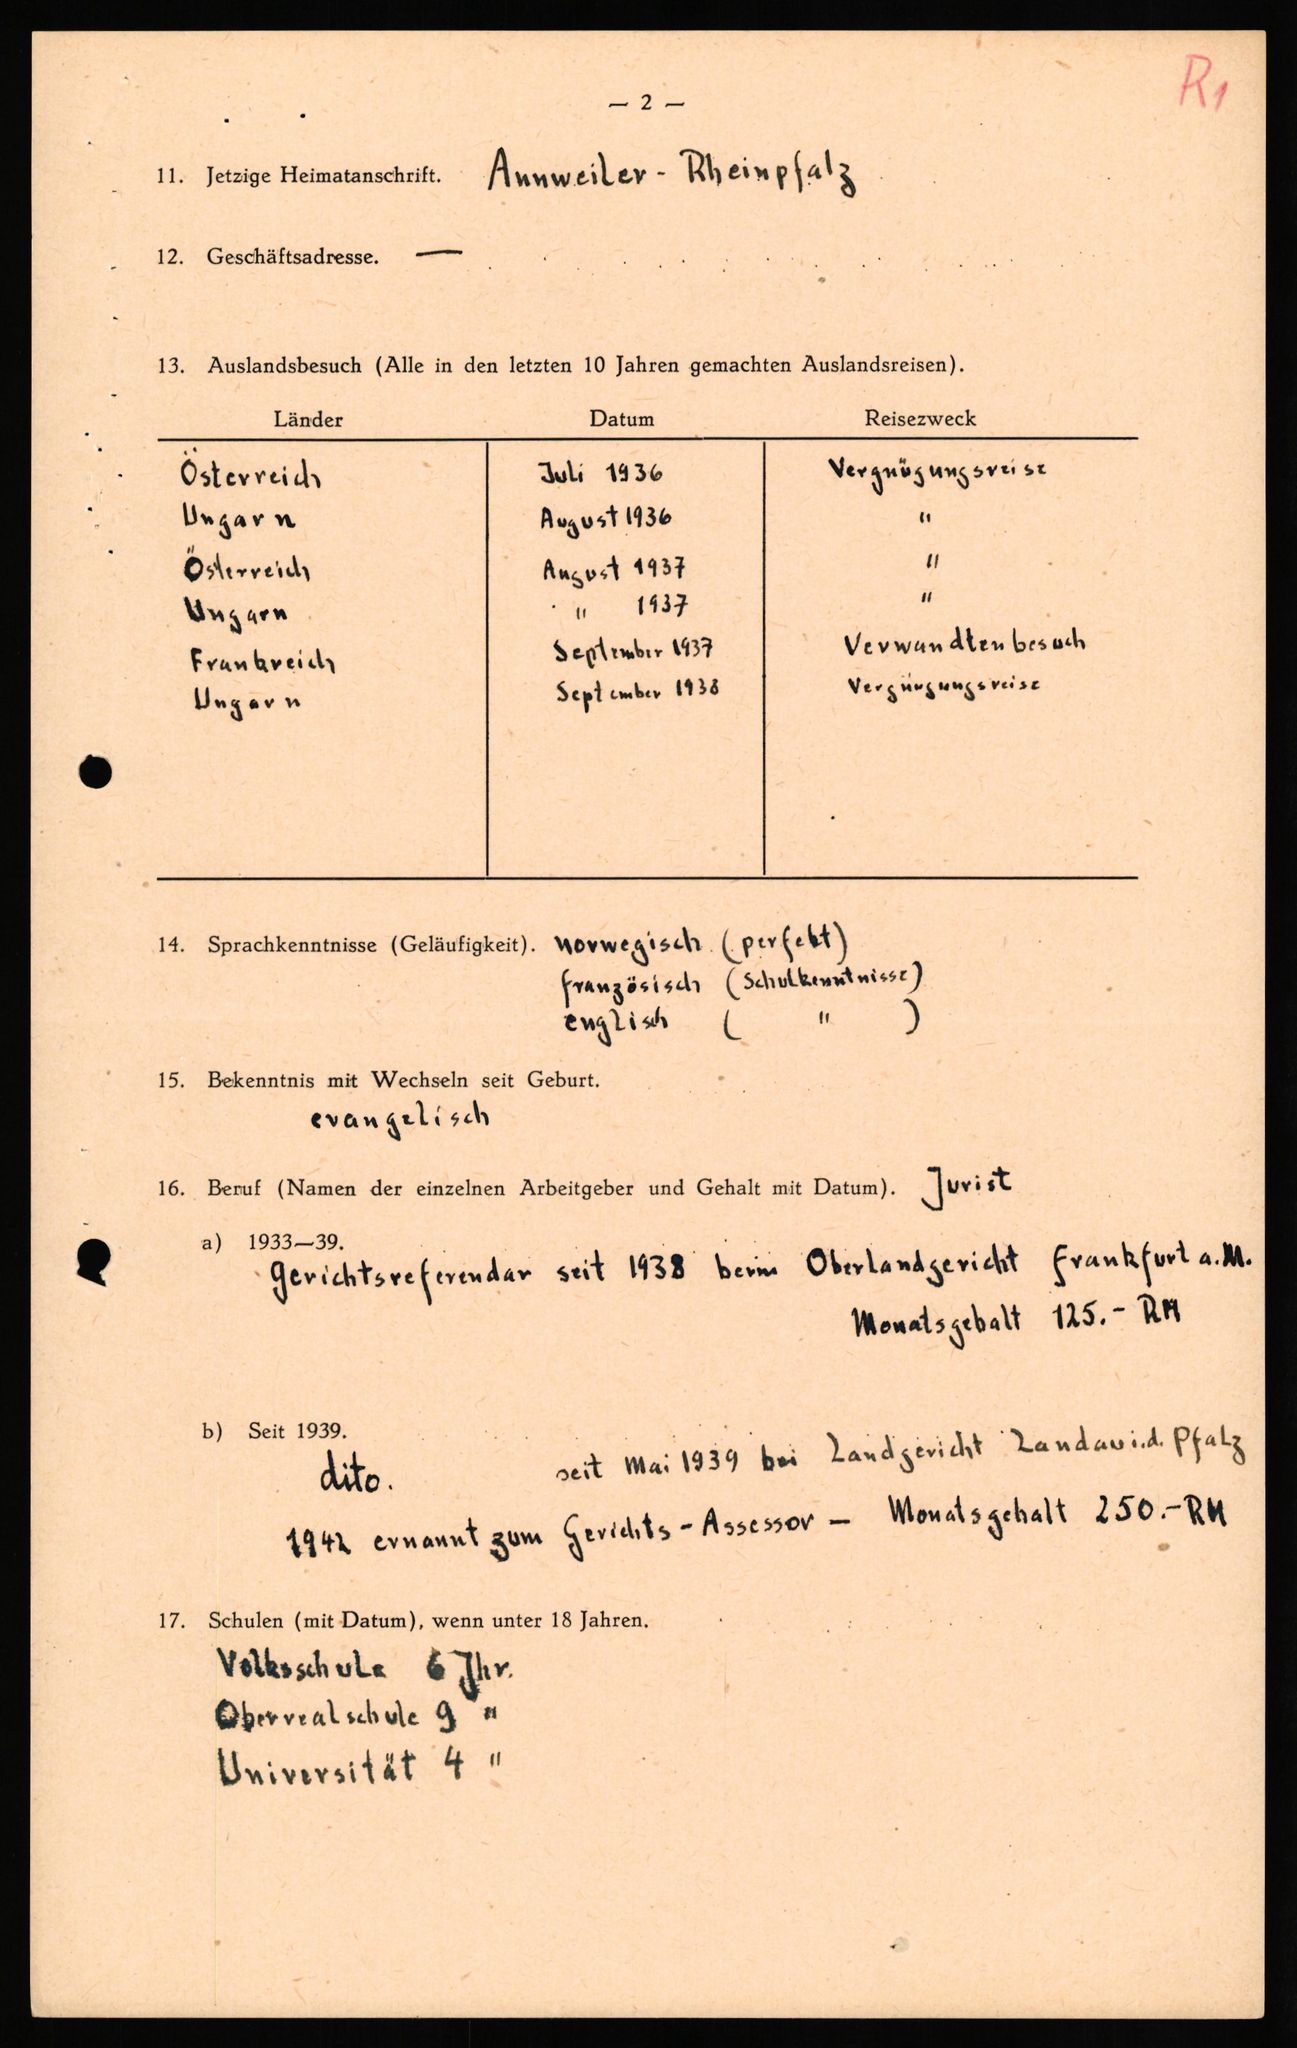 — 2 —
R1
11. Jetzige Heimatanschrift. Annweiler - Rheinpfalz
12. Geschäftsadresse. —
13. Auslandsbesuch (Alle in den letzten 10 Jahren gemachten Auslandsreisen).
Länder Datum Reisezweck
Österreich Juli 1936 Vergnügungsreise
Ungarn August 1936 "
Österreich August 1937 "
Ungarn " 1937 "
Frankreich September 1937 Verwandtenbesuch
Ungarn September 1938 Vergnügungsreise
14. Sprachkenntnisse (Geläufigkeit). norwegisch (perfekt)
französisch (Schulkenntnisse)
englisch ( " )
15. Bekenntnis mit Wechseln seit Geburt.
evangelisch
16. Beruf (Namen der einzelnen Arbeitgeber und Gehalt mit Datum). Jurist
a) 1933—39.
Gerichtsreferendar seit 1938 beim Oberlandgericht Frankfurt a.M.
Monatsgehalt 125.- RM
b) Seit 1939.
dito. seit Mai 1939 bei Landgericht Landau i.d. Pfalz
1942 ernannt zum Gerichts-Assessor — Monatsgehalt 250.- RM
17. Schulen (mit Datum), wenn unter 18 Jahren.
Volksschule 6 Jhr.
Oberrealschule 9 "
Universität 4 "